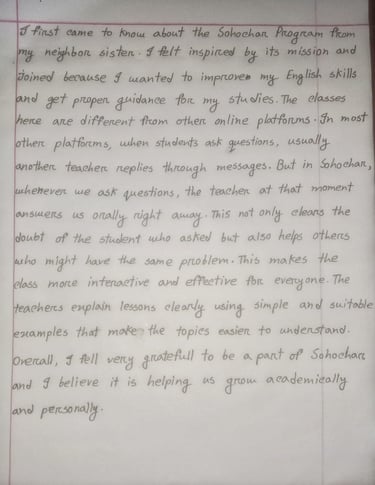 I first came to know about the Sohochar Program from
my neighbor sister. I felt inspired by its mission and
joined because I wanted to improve my English skills
and get proper guidance for my studies. The classes
here are different from other online platforms. In most
other platforms, when students ask questions, usually
another teacher replies through messages. But in Sohochar,
whenever we ask questions, the teacher at that moment
answers us orally right away. This not only clears the
doubt of the student who asked but also helps others
who might have the same problem. This makes the
class more interactive and effective for everyone. The
teachers explain lessons clearly using simple and suitable
examples that make the topics easier to understand.
Overall, I fell very gratefull to be a part of Sohochar
and I believe it is helping us grow academically
and personally.